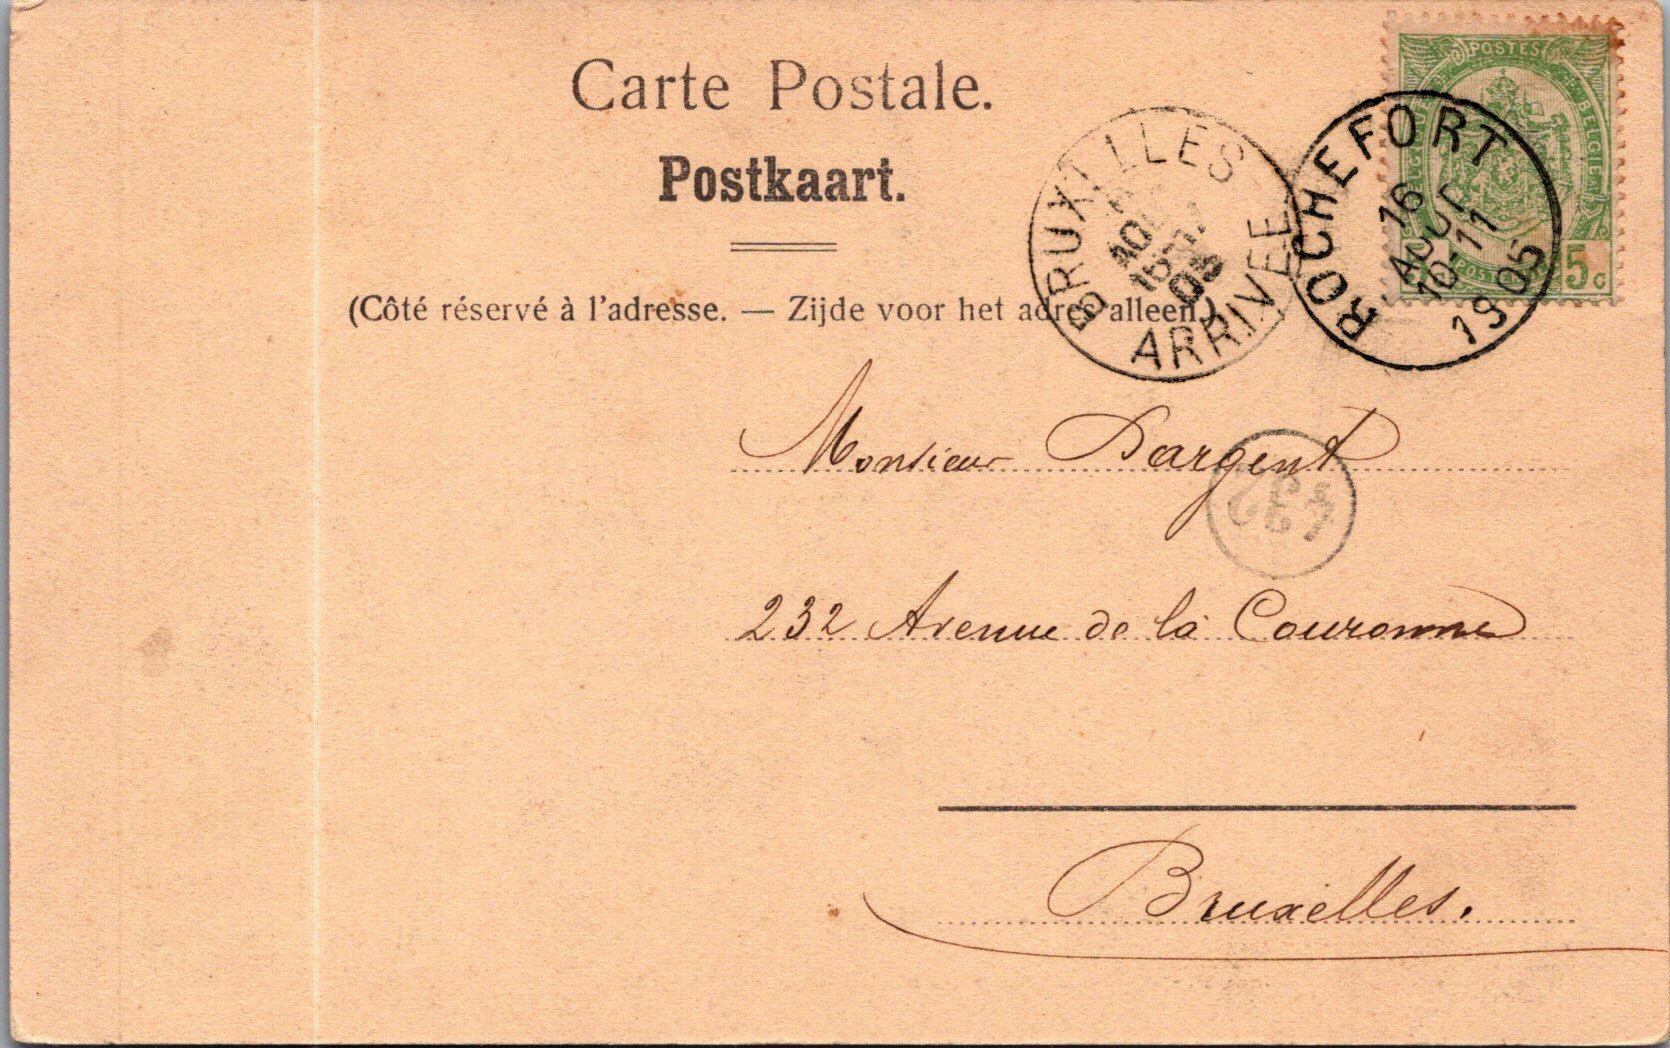 Carte Postale.
Postkaart.
(Côté réservé à l'adresse. — Zijde voor het adres alleen.)
POSTES
BELGIQUE
BELGIË
5 c
ROCHEFORT
16
AOUT
10-11
1905
BRUXELLES
AOU
16
05
ARRIVEE
Monsieur Dargent
432
232 Avenue de la Couronne
Bruxelles.